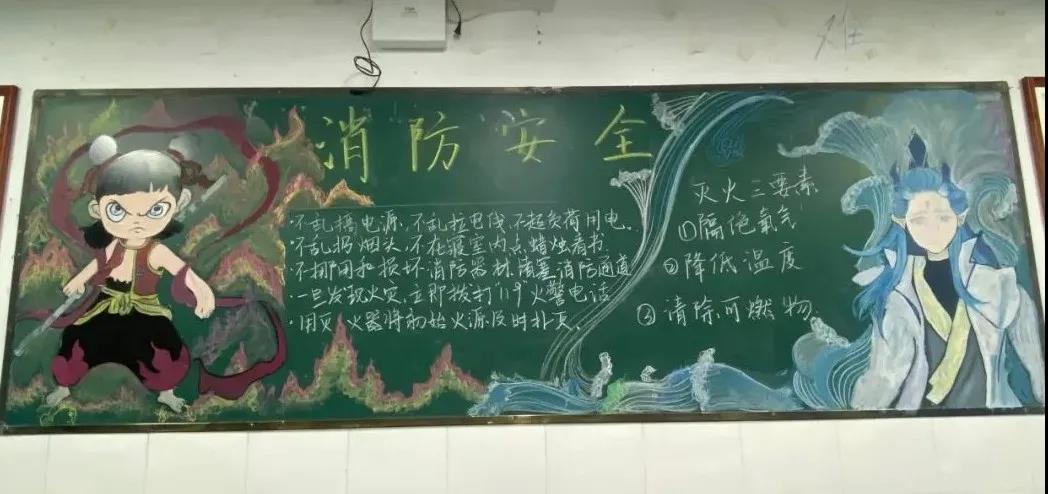 消防安全
·不乱搭电源,不乱拉电线,不超负荷用电.
·不乱扔烟头,不在寝室内点蜡烛看书.
·不挪用和损坏消防器材,堵塞消防通道
·一旦发现火灾,立即拨打"119"火警电话
·用灭火器将初始火源及时扑灭.
灭火三要素
①隔绝氧气
②降低温度
③清除可燃物.